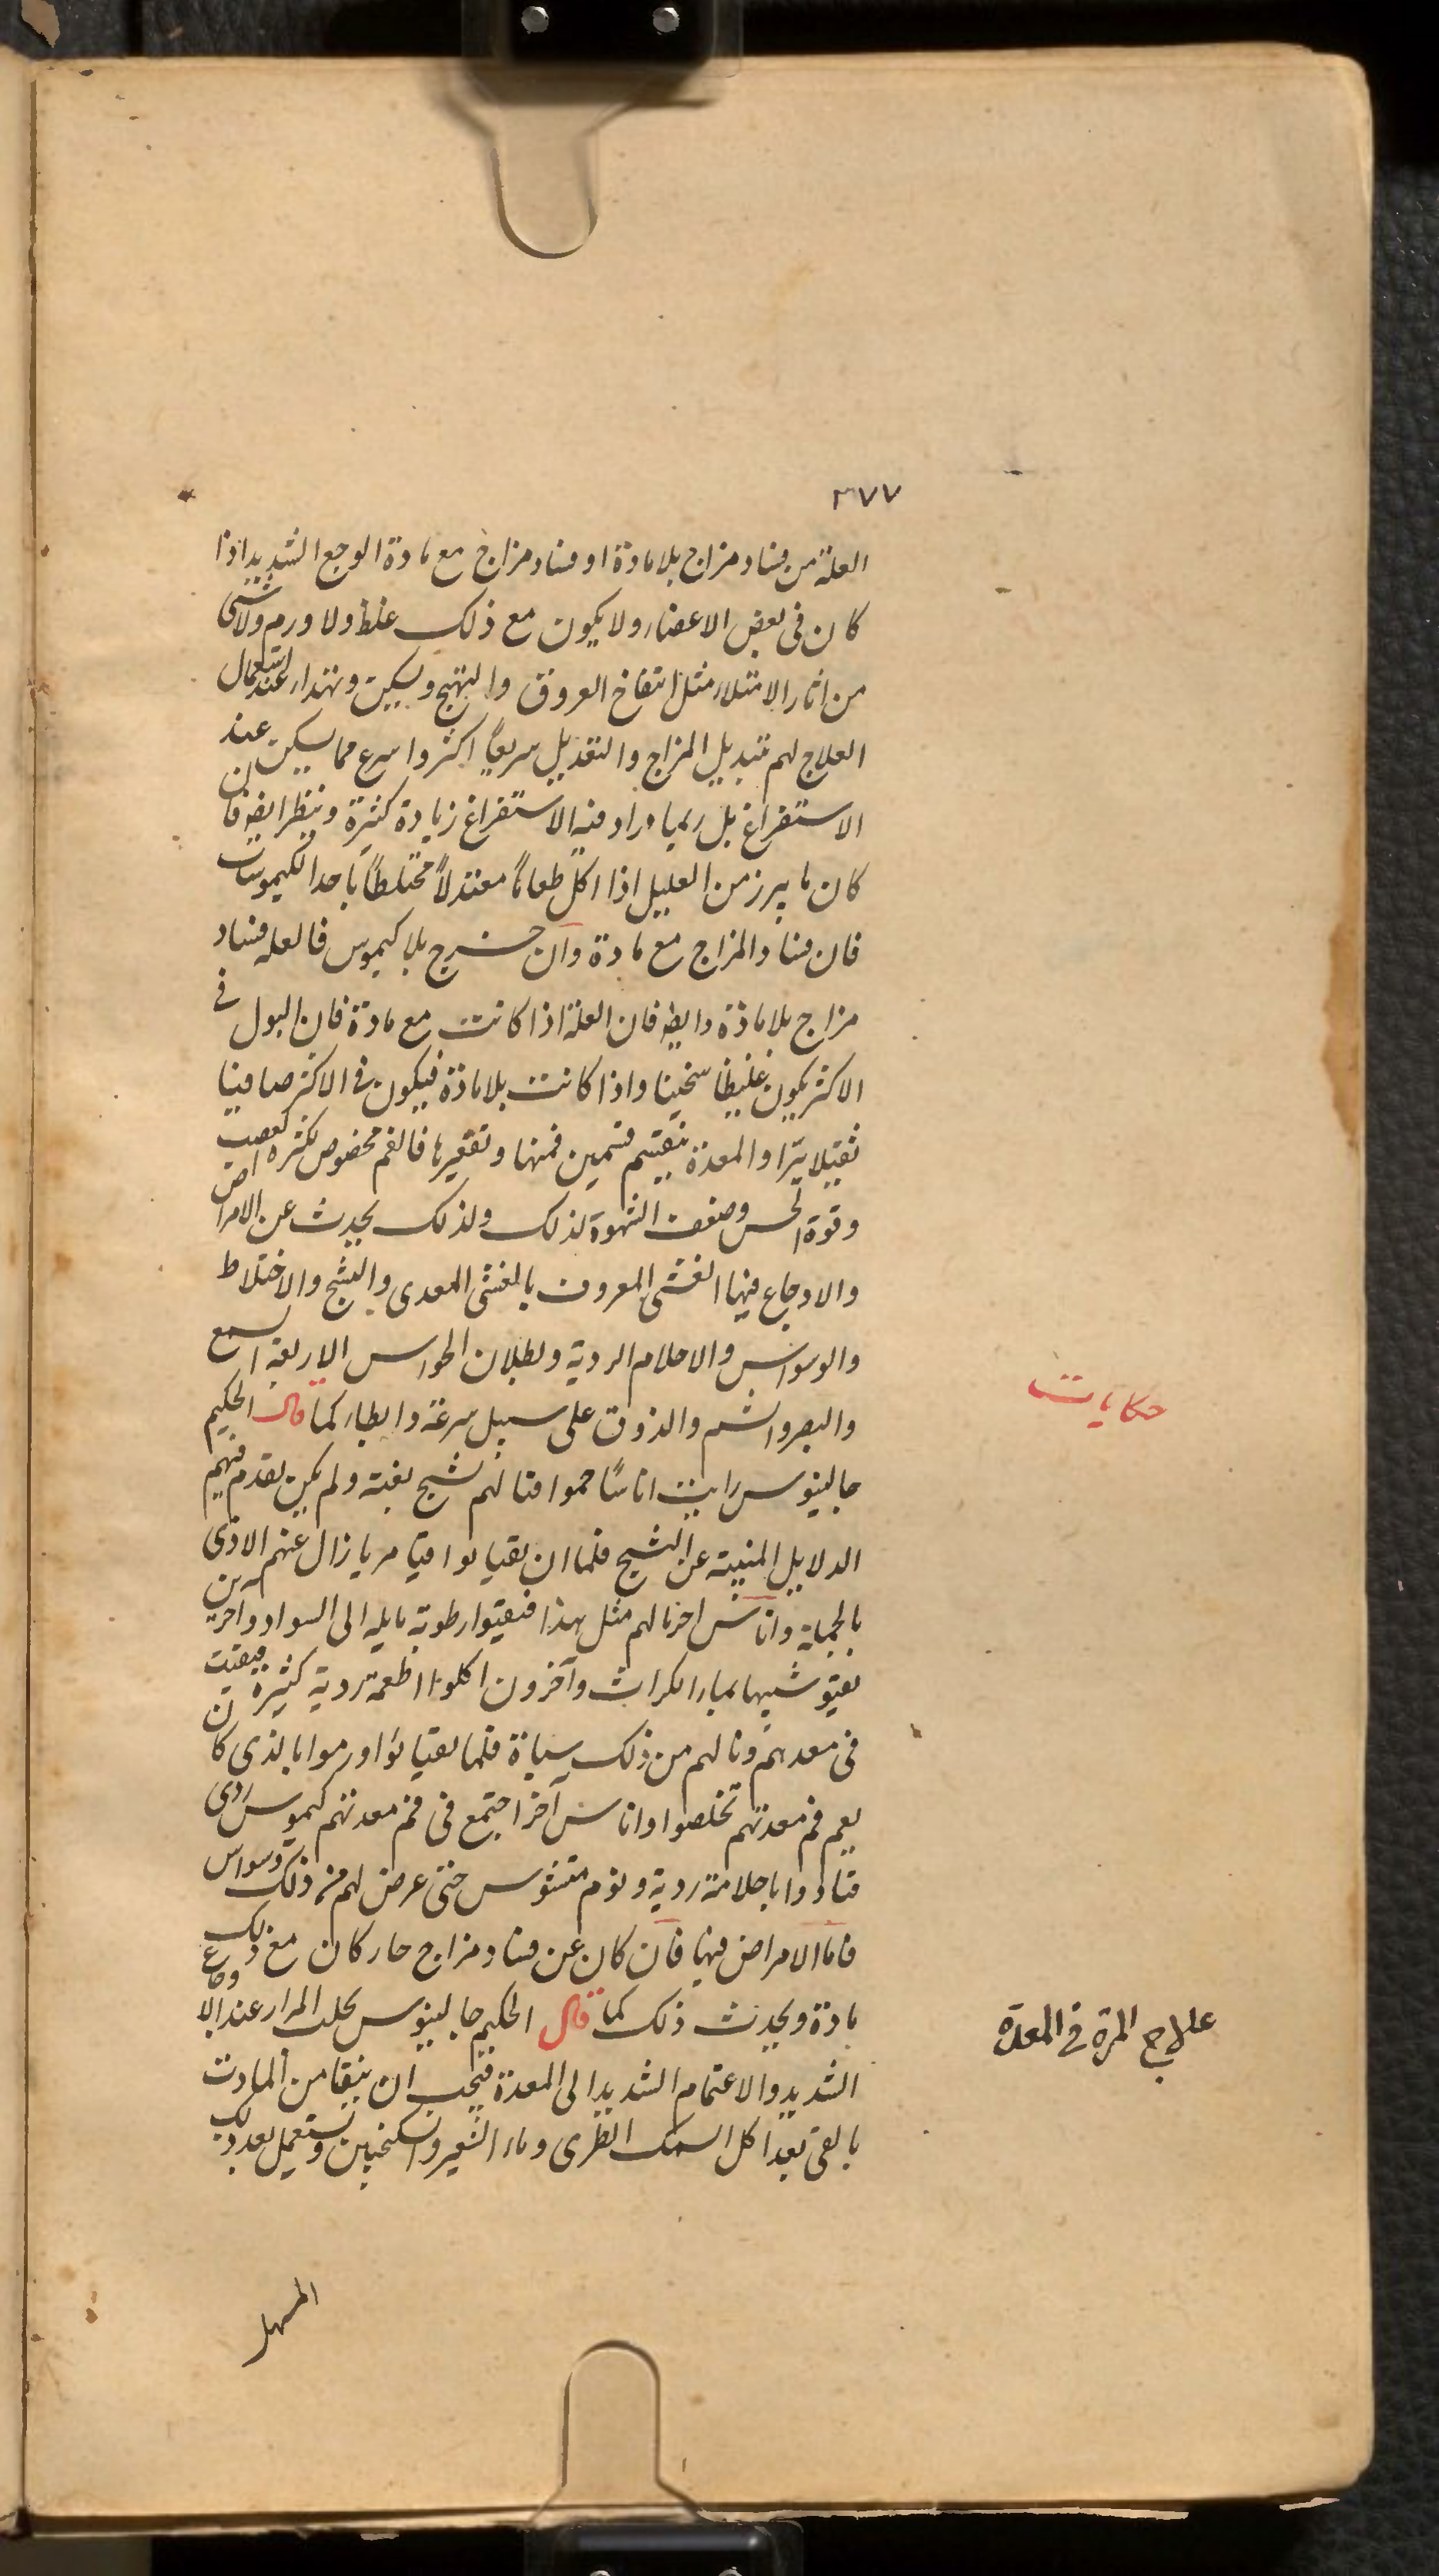 ٣٧٧
العلة من فساد مزاج بلا مادة او فساد مزاج مع مادة الوجع الشديد اذا
كان فى بعض الاعضاء ولا يكون مع ذلك غلظ ولا ورم ولا شى
من اثار الامتلاء مثل انتفاخ العروق والتهيج ويسكن ويهدا عند استعمال
العلاج لهم بتبديل المزاج والتعديل سريعاً اكثر واسرع مما يسكن عند
الاستفراغ بل ربما وراد فيه الاستفراغ زيادة كثيرة وينظر ايضا فان
كان ما يبرز من العليل اذا اكل طعاماً معتدلاً مختلطاً باحد الكيموسات
فان فساد المزاج مع مادة وان خرج بلا كيموس فالعله فساد
مزاج بلا مادة وايضا فان العلة اذا كانت مع مادة فان البول فى
الاكثر يكون غليظا سخينا واذا كانت بلا مادة فيكون فى الاكثر صافيا
والمعدة ينقسم قسمين فمها وتقعيرها فالفم مخصوص بكثرة العصب
وقوة الحس وضعف الشهوة لذلك ولذلك يحدث عن الامراض
والاوجاع فيها الغشى المعروف بالغشى المعدى والتشنج والاختلاط
والوسواس والاحلام الردية وبطلان الحواس الاربعة السمع
والبصر والشم والذوق على سبيل سرعة وابطاء كما قال الحكيم
حكايات
جالينوس رايت اناسًا حموا فنالهم تشنج بغتة ولم يكن تقدم فيهم
الدلايل المنبية عن التشنج فلما ان تقيا لوا قيا مريا زال عنهم الاذى
بالجملة واناس اخر نالهم مثل هذا فتقيوا رطوبة مايله الى السواد واخرين
تقيو شبيها بماء الكراث وآخرون اكلوا اطعمة ردية كثيرة فبقيت
فى معدهم ونالهم من ذلك سباة فلما تقيا ئوا ورموا بالذى كان
يعم فم معدتهم تخلصوا واناس آخر اجتمع فى فم معدتهم كيموس ردى
فتاذوا باحلامة ردية ونوم مشوس حتى عرض لهم من ذلك وسواس
فاما الامراض فيها فان كان عن فساد مزاج حار كان مع ذلك
مادة ويحدث ذلك كما قال الحكيم جالينوس تحلب المرار عند الاوجاع
علاج المرة فى المعدة
الشديد والاغتمام الشديد الى المعدة فيجب ان ينقا من المادت
بالقى بعد اكل السمك الطرى وماء الشعير والسكنجبين ويستعمل بعد ذلك
المسهل